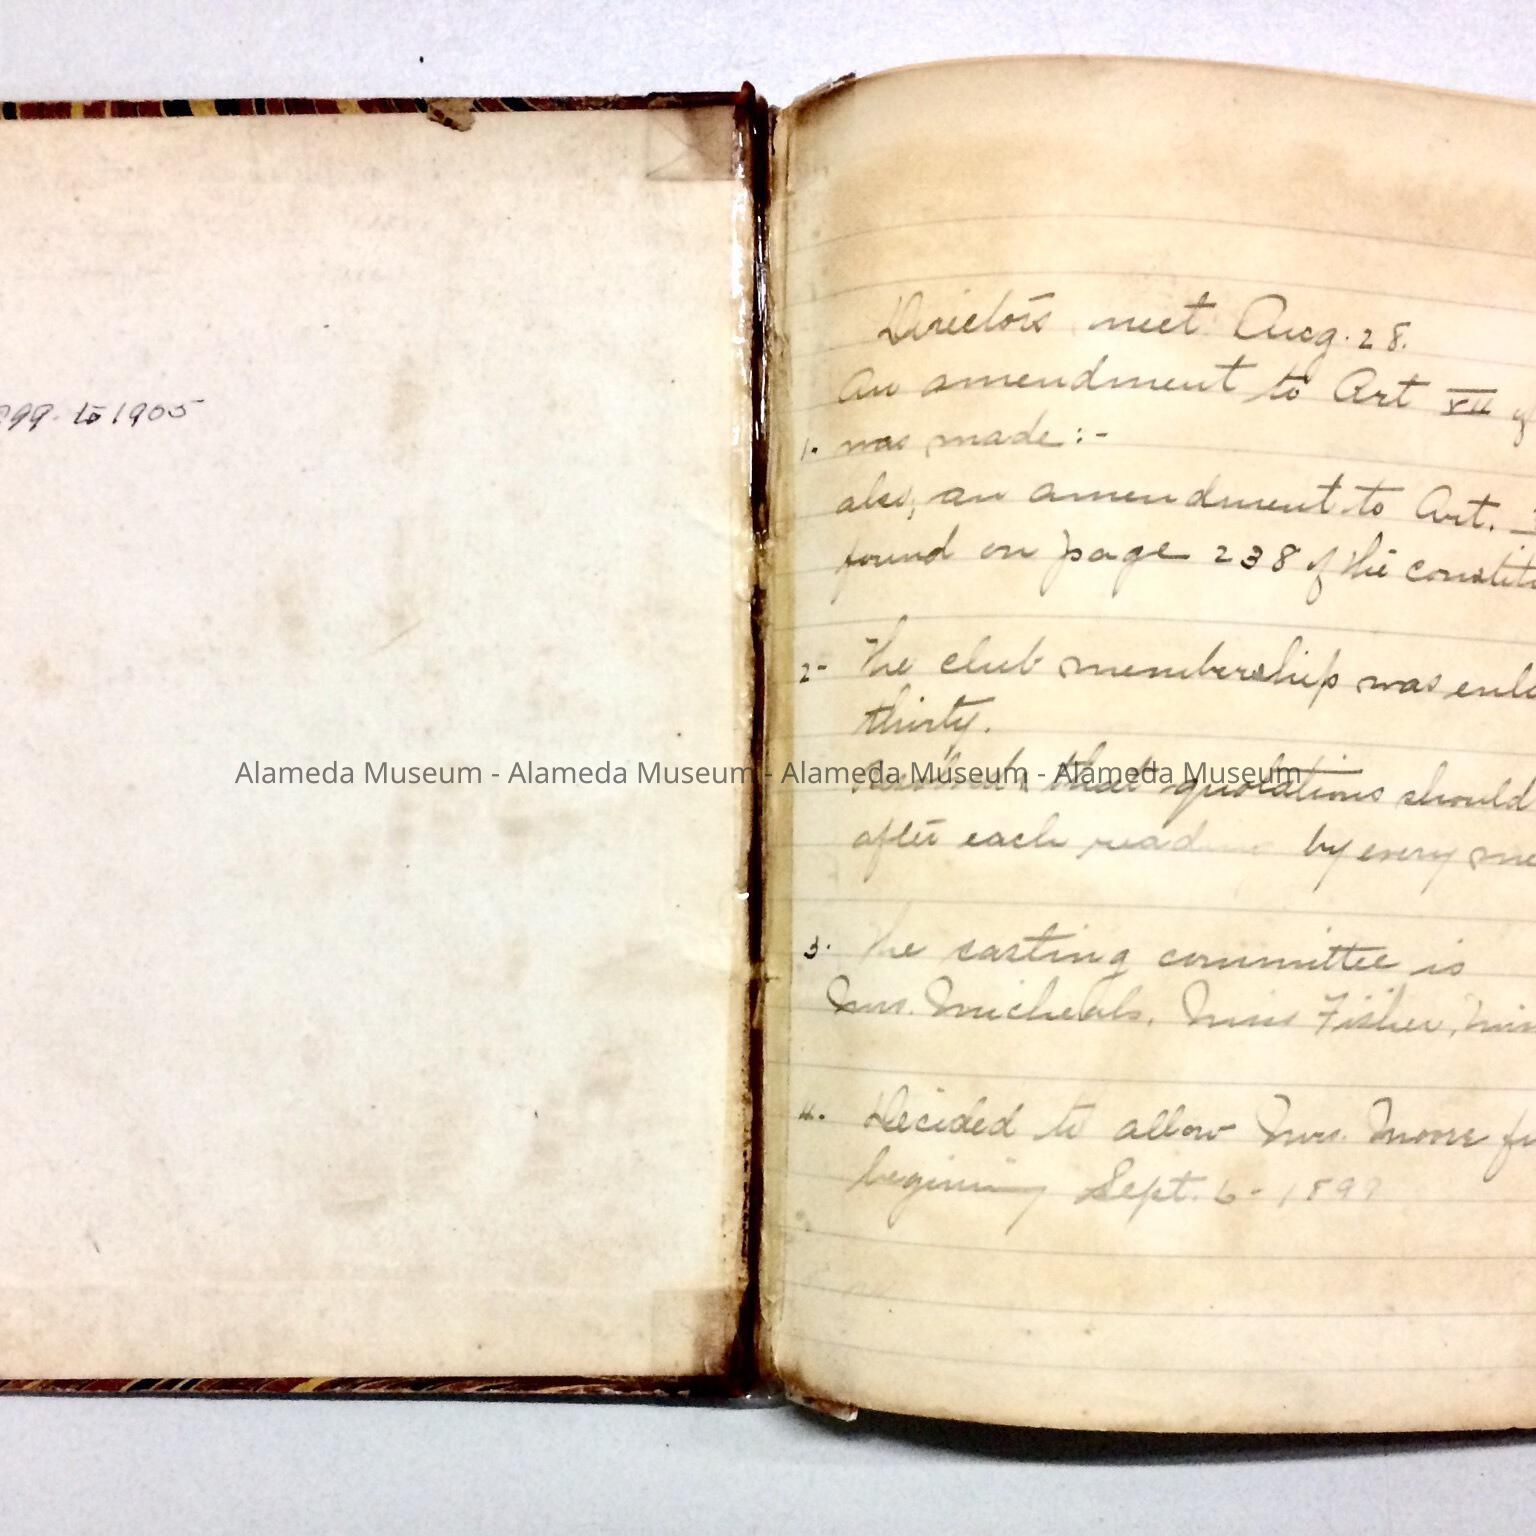 899 to 1905
Directors meet Aug. 28.
An amendment to Art VII of
1. was made:-
also, an amendment to Art.
found on page 238 of the constitu
2- The club membership was enla
thirty.
Alameda Museum - Alameda Museum - Alameda Museum - Alameda Museum
Resolved that quotations should
after each reading by every me
3. The casting committee is
Mrs. Micheals, Miss Fisher, Miss
4. Decided to allow Mrs. Moore
begining Sept. 6 - 1899